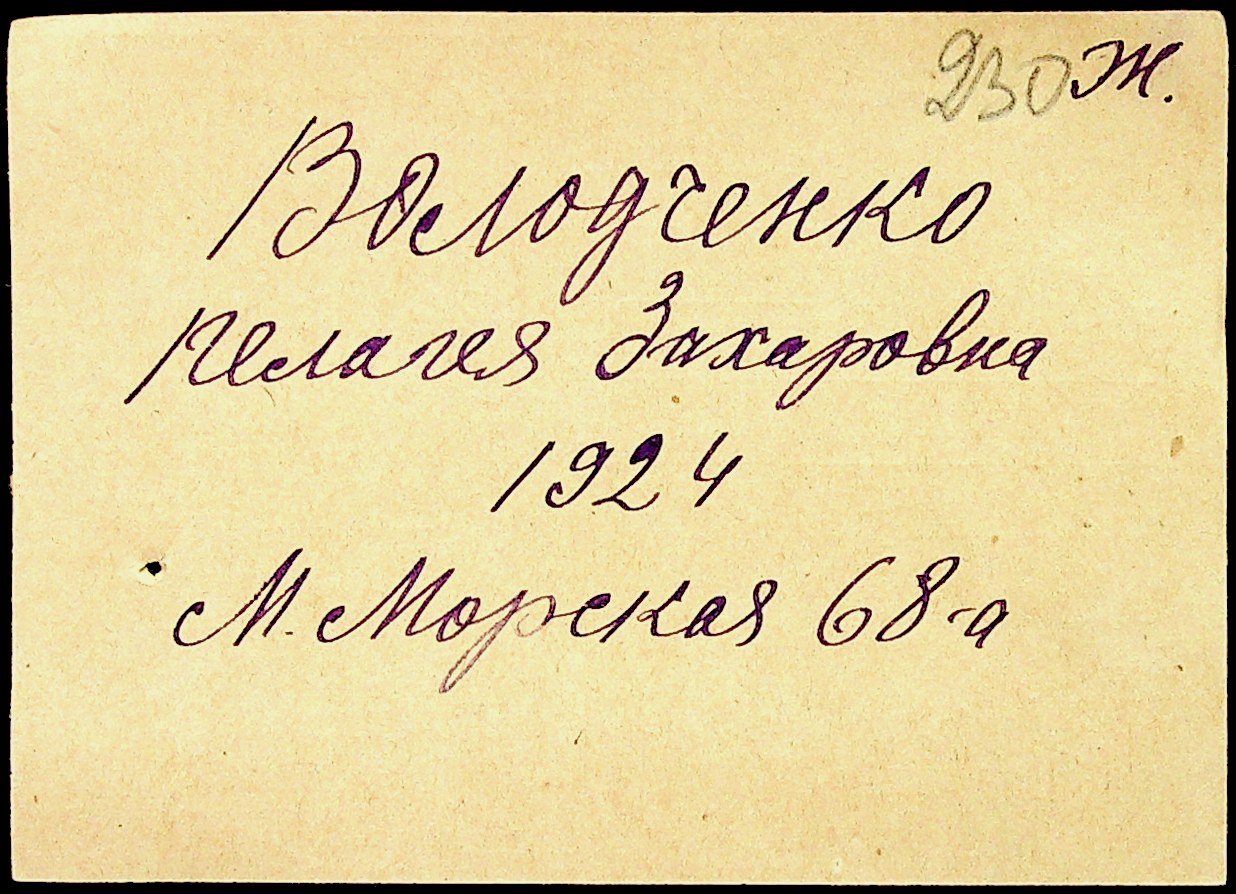 230 Ж.
Володченко
Пелагея Захаровна
1924
М. Морская 68-а